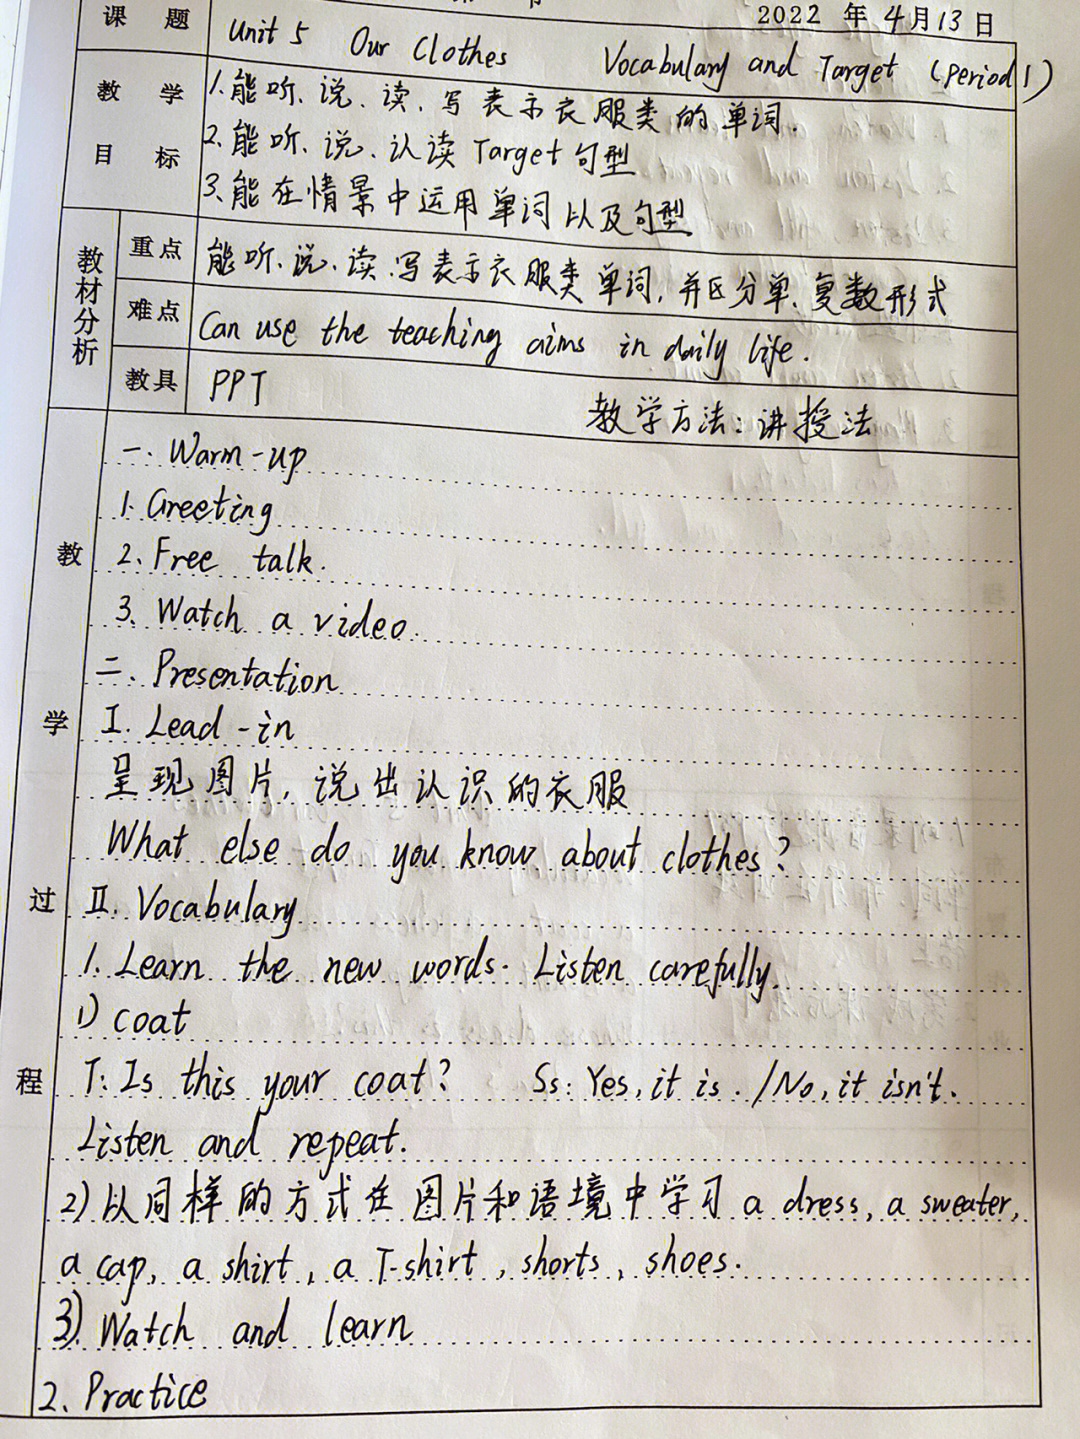 2022 年 4月13日
课题 Unit 5 Our Clothes Vocabulary and Target (Period 1)
教学目标 1.能听、说、读、写表示衣服类的单词.
2.能听、说、认读 Target 句型
3.能在情景中运用单词以及句型
教材分析 重点 能听、说、读、写表示衣服类单词,并区分单、复数形式
难点 Can use the teaching aims in daily life.
教具 PPT 教学方法:讲授法
教学过程
一. Warm-up
1. Greeting
2. Free talk.
3. Watch a video.
二. Presentation
I. Lead-in
呈现图片,说出认识的衣服
What else do you know about clothes?
II. Vocabulary
1. Learn the new words. Listen carefully.
1) coat
T: Is this your coat? Ss: Yes, it is. /No, it isn't.
Listen and repeat.
2) 以同样的方式在图片和语境中学习 a dress, a sweater,
a cap, a shirt, a T-shirt, shorts, shoes.
3) Watch and learn
2. Practice